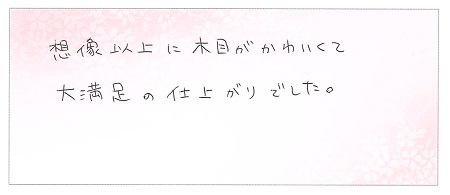 想像以上に木目がかわいくて
大満足の仕上がりでした。